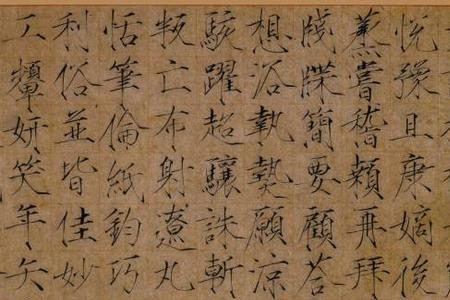 悅豫且康嫡後
蒸嘗稽顙再拜
牋牒簡要顧答
想浴執熱願涼
駭躍超驤誅斬
叛亡布射遼丸
恬筆倫紙鈞巧
利俗並皆佳妙
工顰妍笑年矢